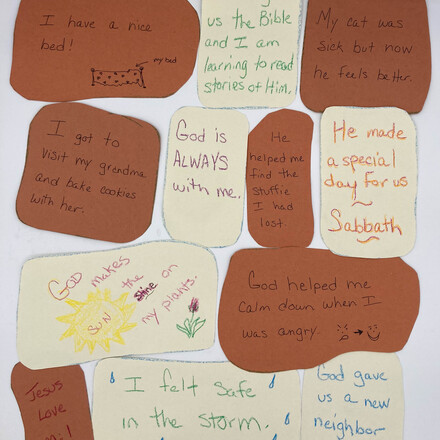 I have a nice
bed!
my bed
us the Bible
and I am
learning to read
stories of Him.
My cat was
sick but now
he feels better.
I got to
visit my grandma
and bake cookies
with her.
God is
ALWAYS
with me.
He
helped me
find the
stuffie
I had
lost.
He made
a special
day for us
Sabbath
GOD makes
the shine on
SUN
my plants.
God helped me
calm down when I
was angry.
Jesus
Love
I felt safe
in the storm.
God gave
us a new
neighbor